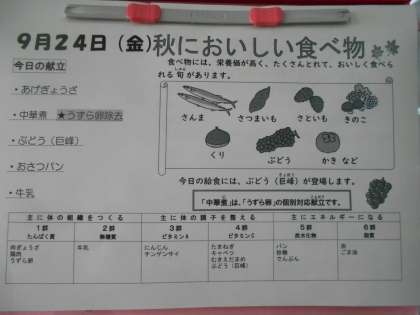 9月24日(金)秋においしい食べ物
今日の献立
食べ物には、栄養価が高く、たくさんとれて、おいしく食べら
れる旬があります。
・あげぎょうざ
・中華煮 ★うずら卵除去
・ぶどう(巨峰)
・おさつパン
・牛乳
さんま さつまいも さといも きのこ
くり ぶどう かき など
今日の給食には、ぶどう(巨峰)が登場します。
「中華煮」は、「うずら卵」の個別対応献立です。
主に体の組織をつくる 主に体の調子を整える 主にエネルギーになる
1群 2群 3群 4群 5群 6群
たんぱく質 無機質 ビタミンA ビタミンC 炭水化物 脂質
肉ぎょうざ 牛乳 にんじん たまねぎ パン 油
鶏肉 チンゲンサイ キャベツ 砂糖 ごま油
うずら卵 むきえだまめ でんぷん
ぶどう(巨峰)